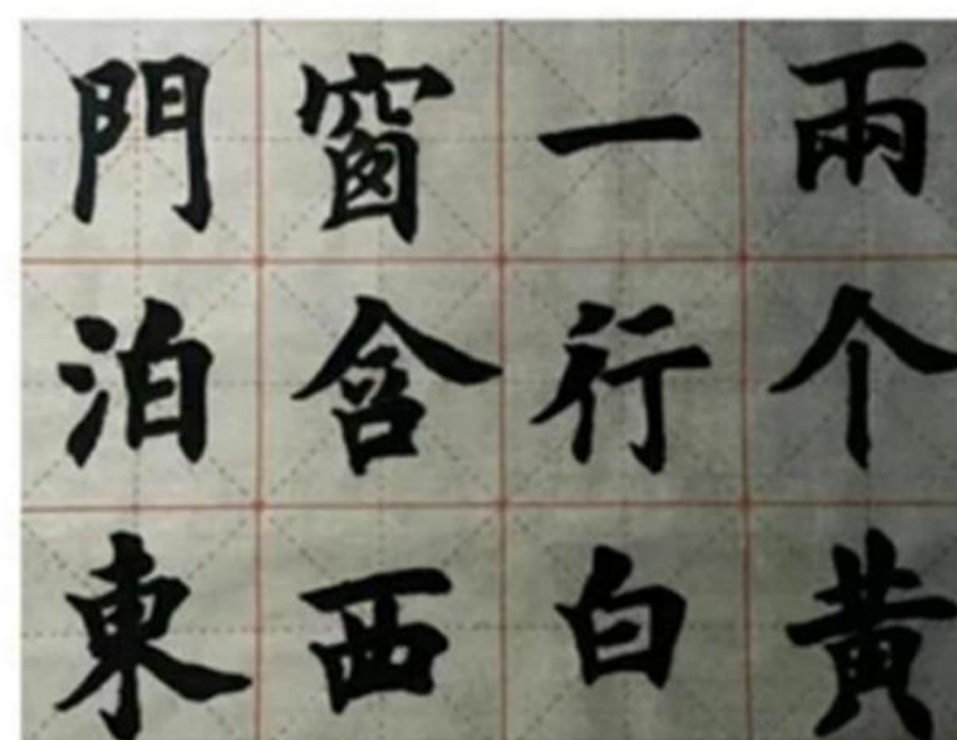 兩个黃
一行白
窗含西
門泊東